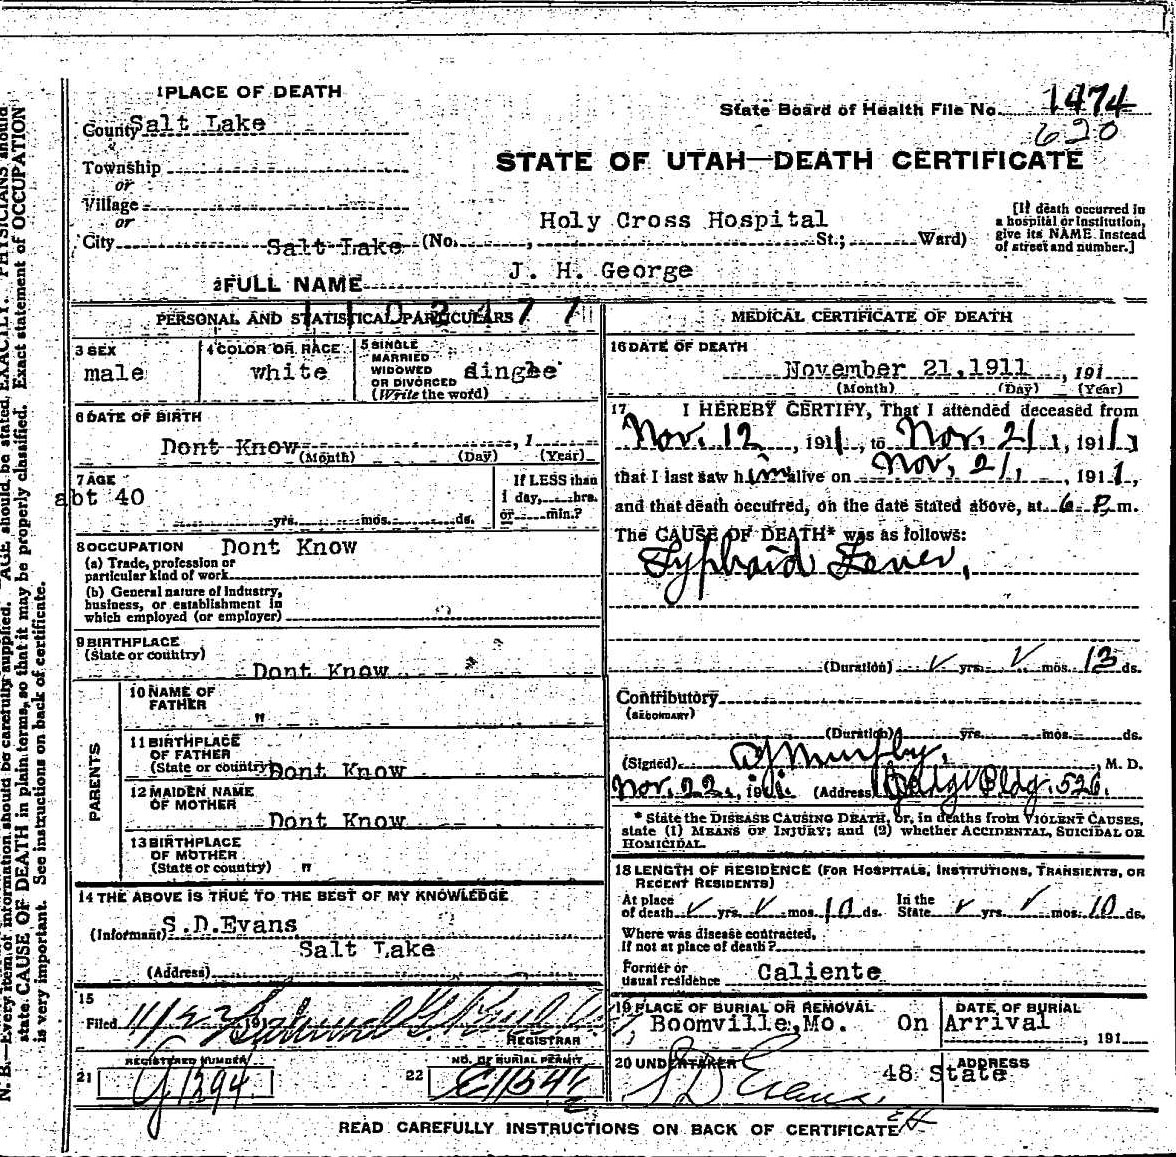 1 PLACE OF DEATH
County Salt Lake
Township
or
Village
or
City Salt Lake (No. Holy Cross Hospital St.; Ward)
State Board of Health File No. 1474
620
STATE OF UTAH—DEATH CERTIFICATE
[If death occurred in
a hospital or institution,
give its NAME instead
of street and number.]
2 FULL NAME J. H. George
PERSONAL AND STATISTICAL PARTICULARS
3 SEX
male
4 COLOR OR RACE
white
5 SINGLE
MARRIED
WIDOWED
OR DIVORCED
(Write the word)
single
6 DATE OF BIRTH
Dont Know , 1
(Month) (Day) (Year)
7 AGE
abt 40
yrs. mos. ds.
If LESS than
1 day, hrs.
or min.?
8 OCCUPATION Dont Know
(a) Trade, profession or
particular kind of work
(b) General nature of Industry,
business, or establishment in
which employed (or employer)
9 BIRTHPLACE
(State or country)
Dont Know
PARENTS
10 NAME OF
FATHER
"
11 BIRTHPLACE
OF FATHER
(State or country) Dont Know
12 MAIDEN NAME
OF MOTHER
Dont Know
13 BIRTHPLACE
OF MOTHER
(State or country) "
14 THE ABOVE IS TRUE TO THE BEST OF MY KNOWLEDGE
(Informant) S.D.Evans
Salt Lake
(Address)
15
Filed 11/22 191
REGISTRAR
REGISTERED NUMBER
21 1294
NO. OF BURIAL PERMIT
22
MEDICAL CERTIFICATE OF DEATH
16 DATE OF DEATH
November 21,1911 , 191
(Month) (Day) (Year)
17 I HEREBY CERTIFY, That I attended deceased from
Nov. 12 , 1911, to Nov. 21, 1911,
that I last saw him alive on Nov. 21, 1911,
and that death occurred, on the date stated above, at 6 P. m.
The CAUSE OF DEATH* was as follows:
Typhoid Fever,
(Duration) yrs. mos. 13 ds.
Contributory
(SECONDARY)
(Duration) yrs. mos. ds.
(Signed) Murphy, M. D.
Nov. 22, 191 (Address) Judge Bldg. 526.
* State the DISEASE CAUSING DEATH, or, in deaths from VIOLENT CAUSES,
state (1) MEANS OF INJURY; and (2) whether ACCIDENTAL, SUICIDAL OR
HOMICIDAL.
18 LENGTH OF RESIDENCE (FOR HOSPITALS, INSTITUTIONS, TRANSIENTS, OR
RECENT RESIDENTS)
At place
of death yrs. mos. 10 ds.
In the
State yrs. mos. 10 ds.
Where was disease contracted,
If not at place of death?
Former or
usual residence Caliente
19 PLACE OF BURIAL OR REMOVAL
Boomville, Mo. On
DATE OF BURIAL
Arrival , 191
20 UNDERTAKER
S D Evans
ADDRESS
48 State
READ CAREFULLY INSTRUCTIONS ON BACK OF CERTIFICATE
N. B.—Every item of information should be carefully supplied. AGE should be stated EXACTLY. PHYSICIANS should
state CAUSE OF DEATH in plain terms, so that it may be properly classified. Exact statement of OCCUPATION
is very important. See instructions on back of certificate.